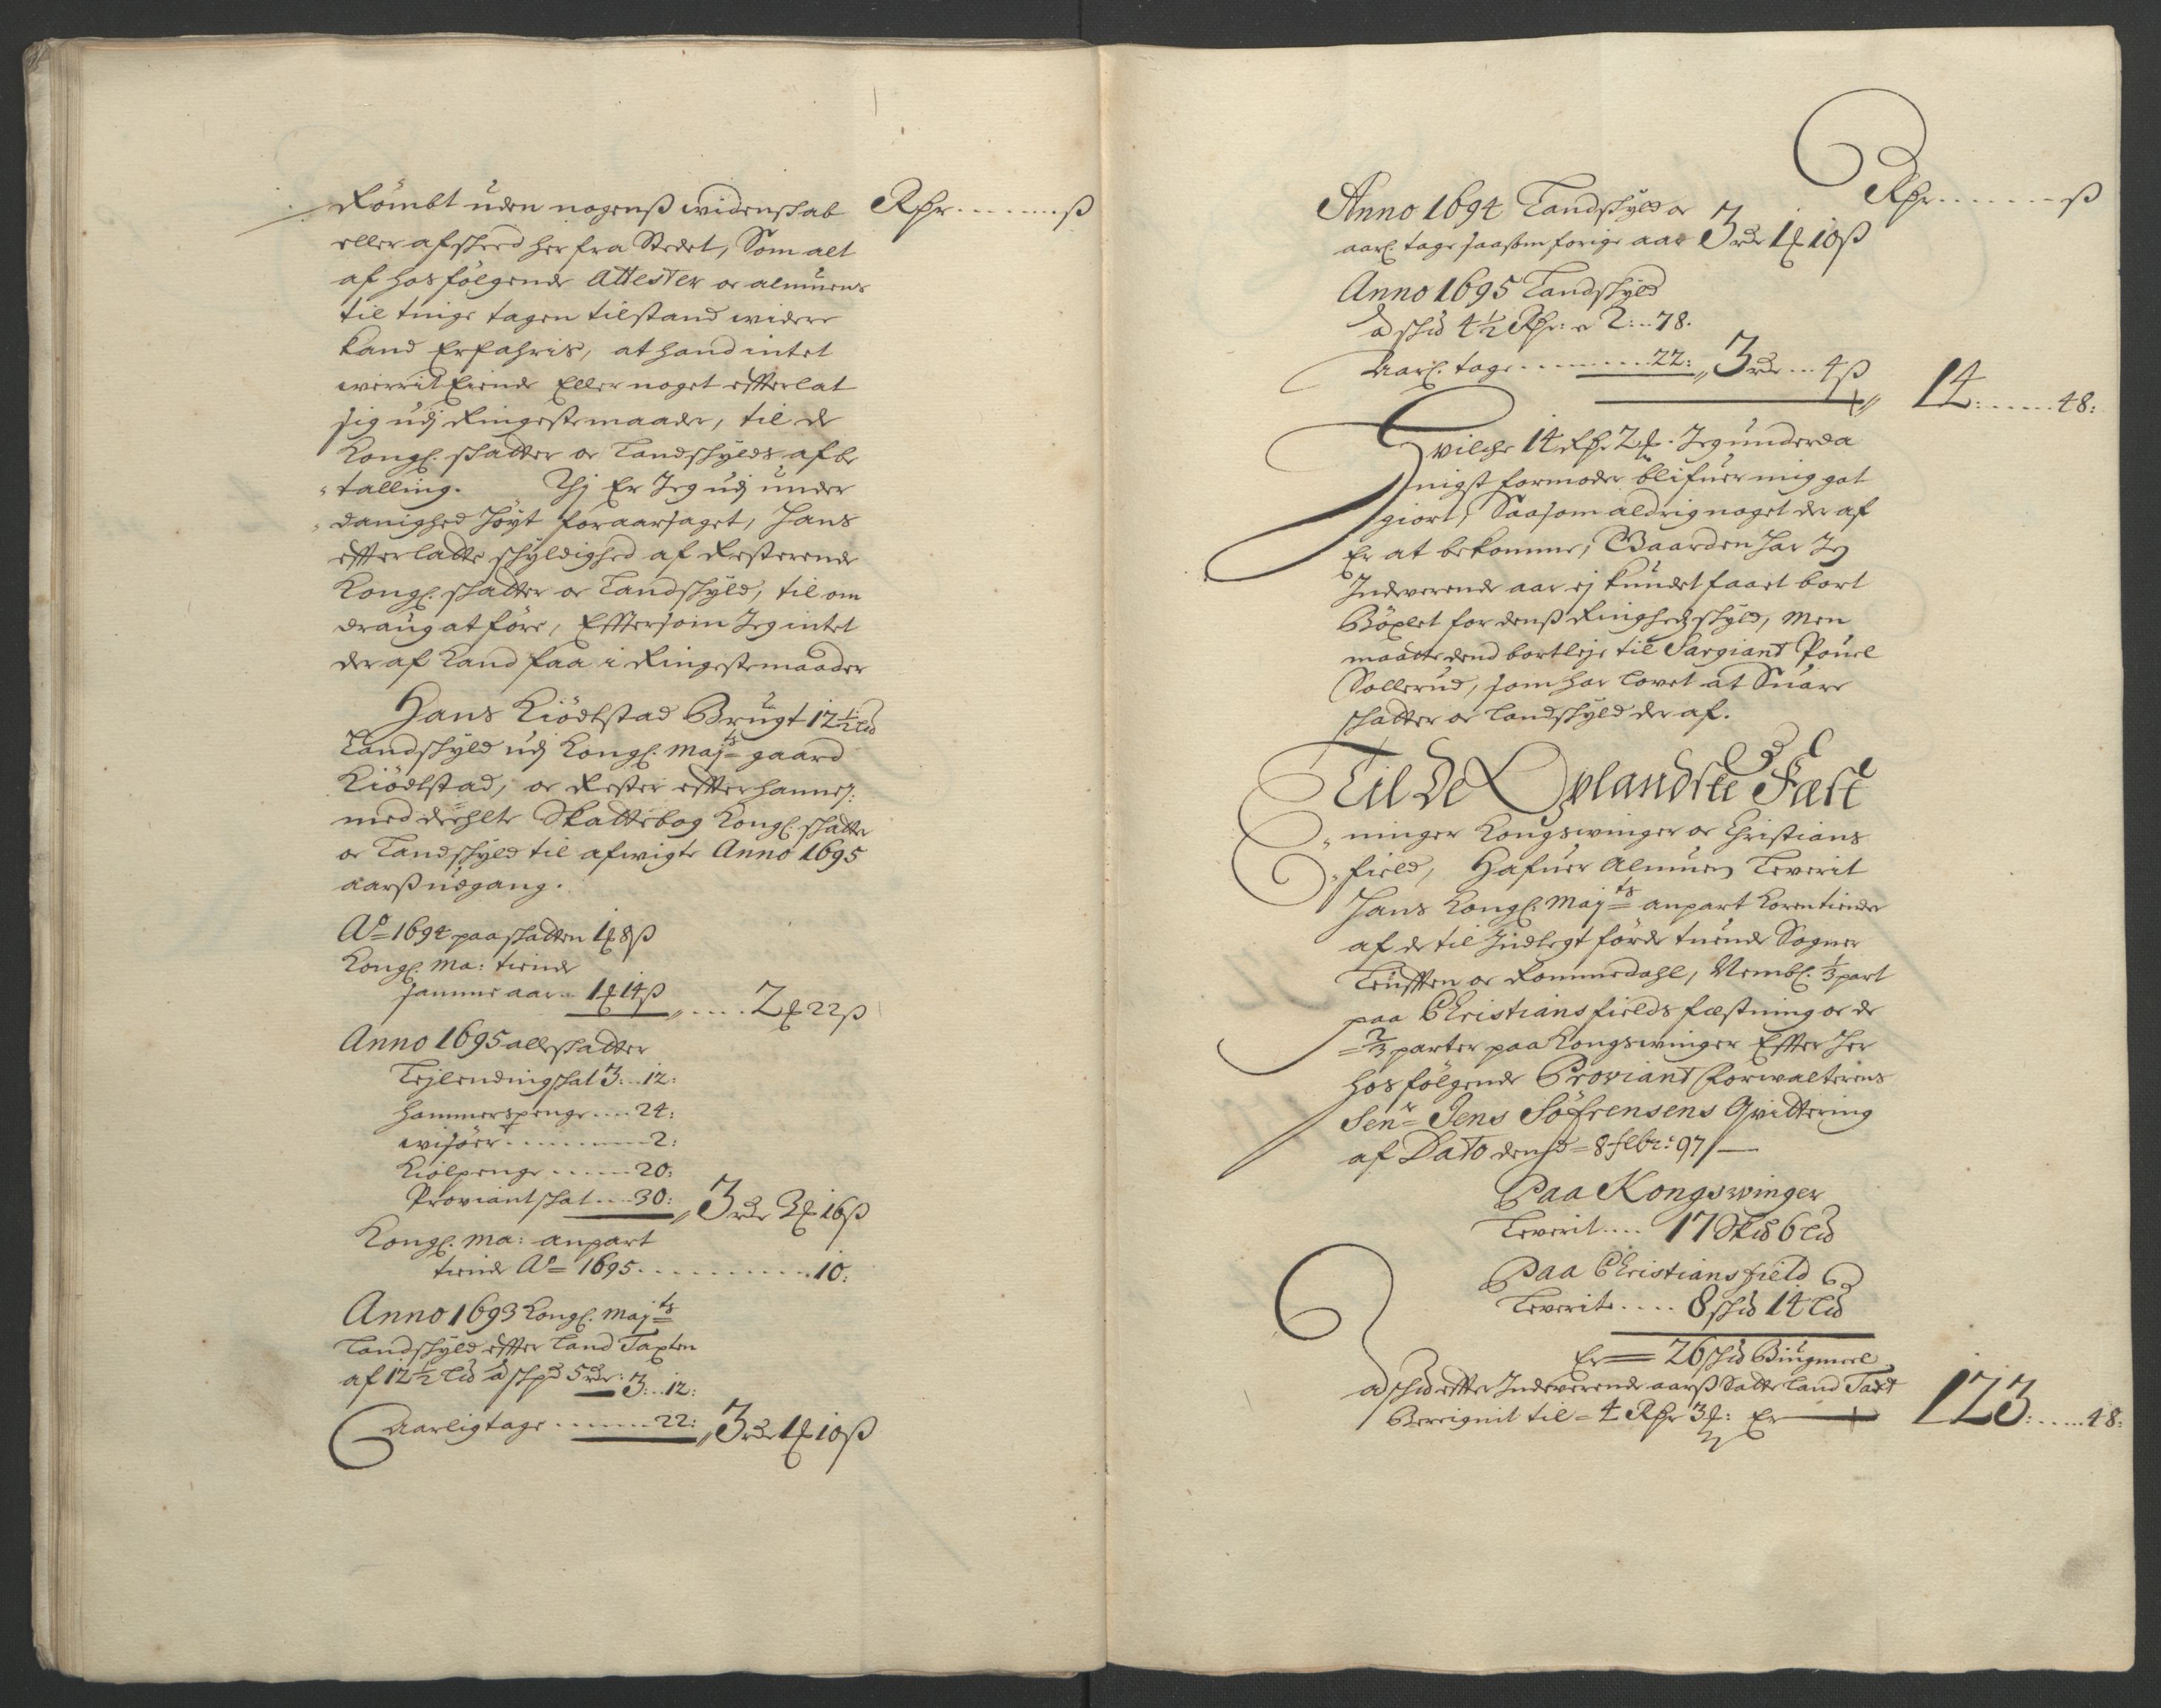 Rømbt uden nogenß widenskab Rdr ß
eller afskeed her fra Stedet, Som alt
af hosfølgende Attester oc almuens
til tinge tagen tilstand widere
kand Erfahris, at hand intet
werrit Eiende Eller noget effterlat
sig udj Ringeste maade, til de
Kongl. skatter oc Landskylds afbe
talling. Thj Er Jeg udj under
danighed høyt foraarsaget, hans
effterlatte skyldighed af Resterende
Kongl. skatter oc Landskyld, til om
draug at føre, Efftersom Jeg intet
der af kand faa i Ringeste maader
Hans Kiödtstad Brugt 12½ Lid
Landskyld udj Kongl. Majts gaard
Kiödtstad, oc Rester effter hannes:
med deehlte Skattebog Kongl. skatter
oc Landskyld til afwigte Anno 1695
aarß udgang.
Ao 1694 paa skatten 1 ₰ 8 ß
Kongl. Ma: tiende
samme aar 1 ₰ 14 ß 2 ₰ 22 ß
Anno 1695 alle skatter
Lejlendingskat 3 12:
hammerspenge 24:
wisöer 2:
Kiølpenge 20:
Proviantskat 30: 3 rdr 3 ₰ 16 ß
Kongl. Ma: anpart
tiende Ao 1695 10:
Anno 1693 Kongl. Majts
Landskyld effter Land Taxten
af 12½ Lid à skpd 5 rdr: 3 12:
Aarlig tage 22: 3 rdr 1 ₰ 10 ß
Rdr ß
Anno 1694 Landskyld oc
aarl. tage saasom forige aar 3 rdr 1 ₰ 10 ß
Anno 1695 Landskyld
à skid 4½ Rdr: er 2: 78.
Aarl. tage 22: 3 rdr 4 ß 14: 48:
Hvilche 14 Rdr 2 ₰. Jeg underda
nigst formoder blifuer mig got
giort, Saasom aldrig noget der af
Er at bekomme, Gaarden har Jeg
Indeverende aar ej kundet faaet bort
Böxlet for denß Ringhedß skyld, Men
maatte dend bortleje til Sargiant Pouel
Sollerud, som har lovet at Suare
skatter oc Landskyld der af.
Til De Oplandske Fæst
ninger Kongswinger oc Christians
field, Hafuer Almuen Leverit
Hans Kongl. Majts anpart Korentiende
af de til Indlegt førde tuende Sogner
Leufften oc Rommedahl, Nembl. 1/3 part
paa Christiansfields fæstning oc de
2/3 parter paa Kongswinger Effter her
hos følgende Proviant forwalterens
Senr Jens Söfrensens Qvittering
af Dato den 8 febr: 97
Paa Kongswinger
Leverit 17 Skid 6 Lid
Paa Christiansfield
Leverit 8 skid 14 Lid
Er 26 skid Bÿgmeel
à skid effter Indeverende aarß Satte land Taxt
Bereignit til 4 Rdr 3 ₰: Er 123: 48: